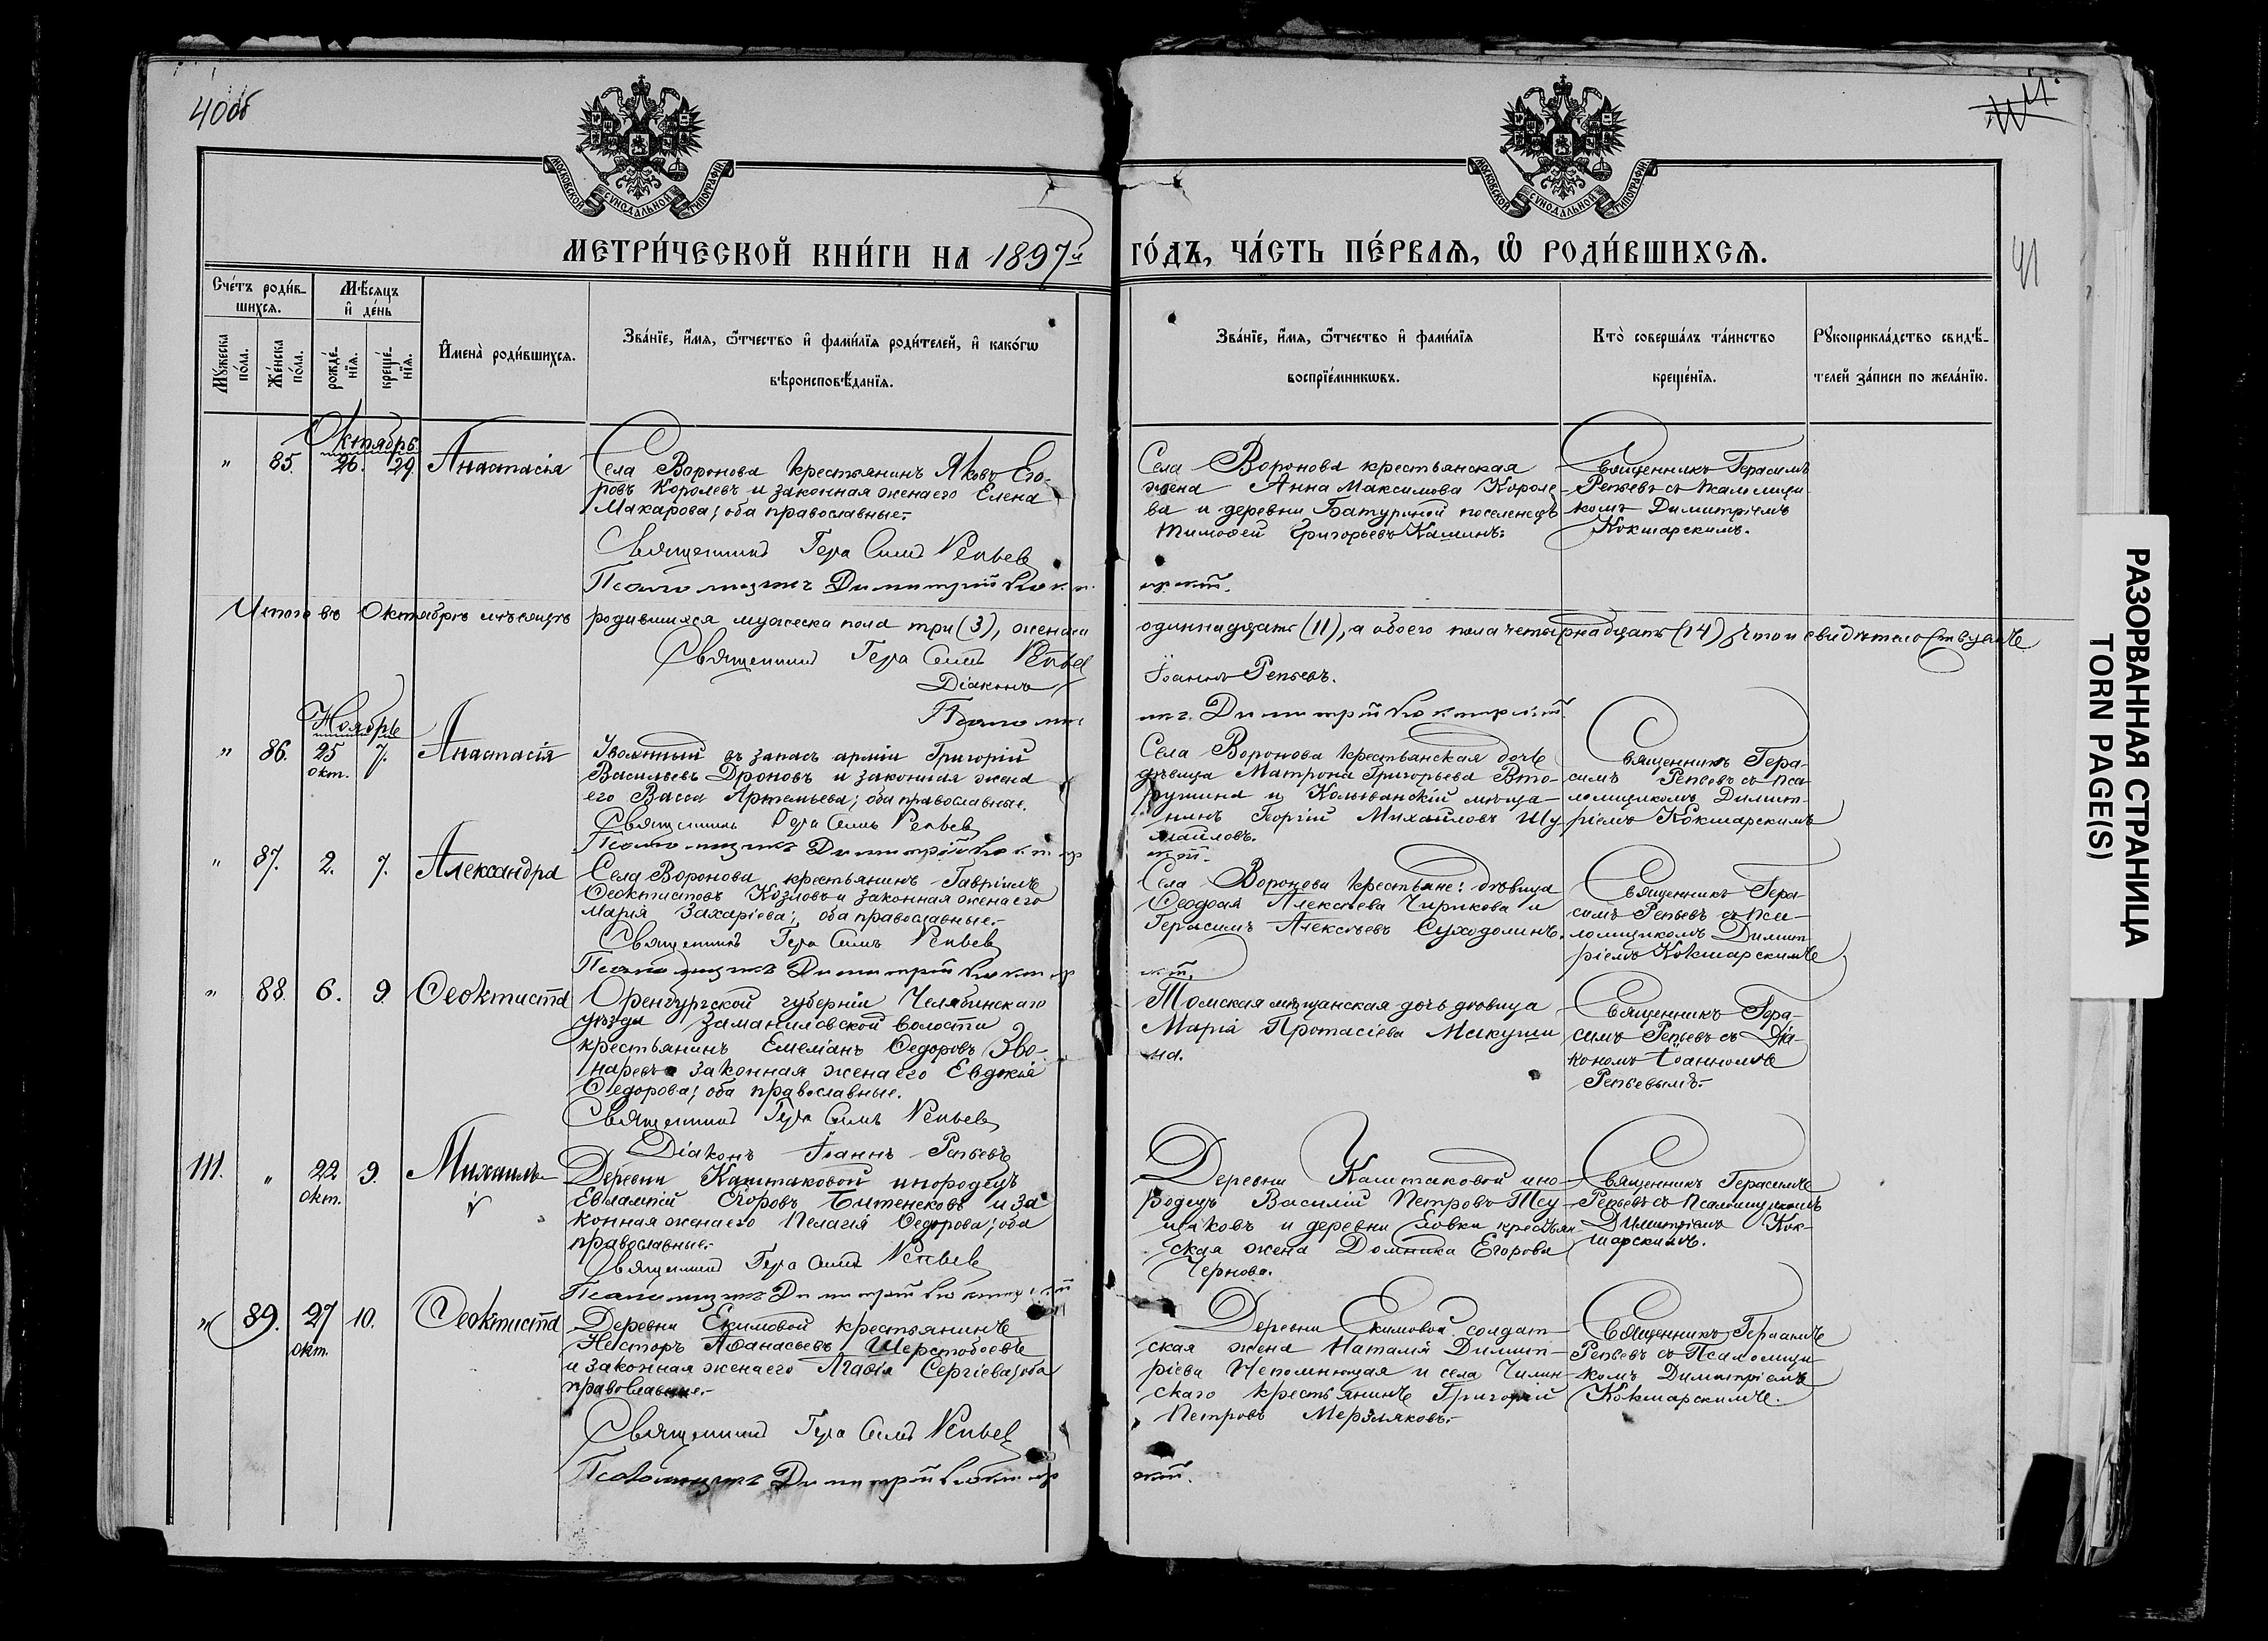 40об
41
41
МОСКОВСКОЙ СѴНОДАЛЬНОЙ ТИПОГРАФІИ
МОСКОВСКОЙ СѴНОДАЛЬНОЙ ТИПОГРАФІИ
МЕТРИ́ЧЕСКОЙ КНИ́ГИ НА 1897й ГО́ДЪ, ЧА́СТЬ ПЕ́РВАѦ, Ѡ҆ РОДИ́ВШИХСѦ.
Сче́тъ роди́в-
шихсѧ.
Мѣ́сѧцъ
и҆ де́нь
Мꙋ́жеска по́ла.
Же́нска по́ла.
рожде́-
нїѧ.
креще́-
нїѧ.
И҆мена̀ роди́вшихсѧ.
Зва́нїе, и҆́мѧ, ѻ҆́тчество и҆ фами́лїѧ роди́телей, и҆ како́гѡ
вѣроисповѣ́данїѧ.
Зва́нїе, и҆́мѧ, ѻ҆́тчество и҆ фами́лїѧ
воспрїе́мникѡвъ.
Кто̀ соверша́лъ та́инство
креще́нїѧ.
Рꙋкоприкла́дство свидѣ́-
телей за́писи по жела́нїю.
Октябрь
" 85. 26. 29. Анастасія
Села Воронова крестьянинъ Яковъ Его-
ровъ Королевъ и законная жена его Елена
Макарова; оба православные.-
Священникъ Герасимъ Репьевъ
Псаломщикъ Димитрій Кокшарскій.
Села Воронова крестьянская
жена Анна Максимова Короле-
ва и деревни Батуриной поселенецъ
Тимофей Григорьевъ Кашинъ.
Священникъ Герасимъ
Репьевъ съ псаломщи-
комъ Димитріемъ
Кокшарскимъ.
Итого въ Октябрѣ мѣсяцѣ родившихся мужеска пола три (3), женска одиннадцать (11), а обоего пола четырнадцать (14) что и свидѣтельствуемъ
Священникъ Герасимъ Репьевъ
Діаконъ Іоаннъ Репьевъ.
Псаломщикъ Димитрій Кокшарскій.
Ноябрь
" 86. 25 окт. 7. Анастасія
Уволенный въ запасъ арміи Григорій
Васильевъ Дроновъ и законная жена
его Васса Артемьева; оба православные.
Священникъ Герасимъ Репьевъ
Псаломщикъ Димитрій Кокшарскій.
Села Воронова крестьянская дочь
дѣвица Матрона Григорьева Вто-
рушина и Колыванскій мѣща-
нинъ Георгій Михайловъ Шу-
майловъ.
Священникъ Гера-
симъ Репьевъ съ пса-
ломщикомъ Димит-
ріемъ Кокшарскимъ
" 87. 2. 7. Александра
Села Воронова крестьянинъ Гавріилъ
Ѳеоктистовъ Козловъ и законная жена его
Марія Захаріева; оба православные.-
Священникъ Герасимъ Репьевъ
Псаломщикъ Димитрій Кокшарскій.
Села Воронова крестьяне: дѣвица
Ѳеодосія Алексѣева Чирикова и
Герасимъ Алексѣевъ Суходолинъ.
Священникъ Гера-
симъ Репьевъ съ пса-
ломщикомъ Димит-
ріемъ Кокшарскимъ
" 88. 6. 9. Ѳеоктиста
Оренбургской губерніи Челябинскаго
уѣзда Заманиловской волости
крестьянинъ Емеліанъ Ѳедоровъ Зво-
наревъ законная жена его Евдокія
Ѳедорова; оба православные.
Священникъ Герасимъ Репьевъ
Діаконъ Іоаннъ Репьевъ
Томская мѣщанская дочь дѣвица
Марія Протасіева Микуши
на.
Священникъ Гера-
симъ Репьевъ съ Діа-
кономъ Іоанномъ
Репьевымъ.-
111. " 22 окт. 9. Михаилъ
Деревни Каштаковой инородецъ
Евлампій Егоровъ Битенековъ и за
конная жена его Пелагія Ѳедорова; оба
православные.-
Священникъ Герасимъ Репьевъ
Псаломщикъ Димитрій Кокшарскій
Деревни Каштаковой ино-
родецъ Василій Петровъ Теу-
щаковъ и деревни Еловки крестьян-
ская жена Домника Егорова
Чернова.
Священникъ Герасимъ
Репьевъ съ Псаломщикомъ
Димитріемъ Кок-
шарскимъ.
" 89. 27 окт. 10. Ѳеоктиста
Деревни Екимовой крестьянинъ
Несторъ Аѳанасьевъ Шерстобоевъ
и законная жена его Агафія Сергіева; оба
православные.-
Священникъ Герасимъ Репьевъ
Псаломщикъ Димитрій Кокшарскій.
Деревни Екимовой солдат-
ская жена Наталія Димит-
ріева Непомнющая и села Чилин-
скаго крестьянинъ Григорій
Петровъ Мерзляковъ.-
Священникъ Герасимъ
Репьевъ съ Псаломщи-
комъ Димитріемъ
Кокшарскимъ.
РАЗОРВАННАЯ СТРАНИЦА
TORN PAGE(S)